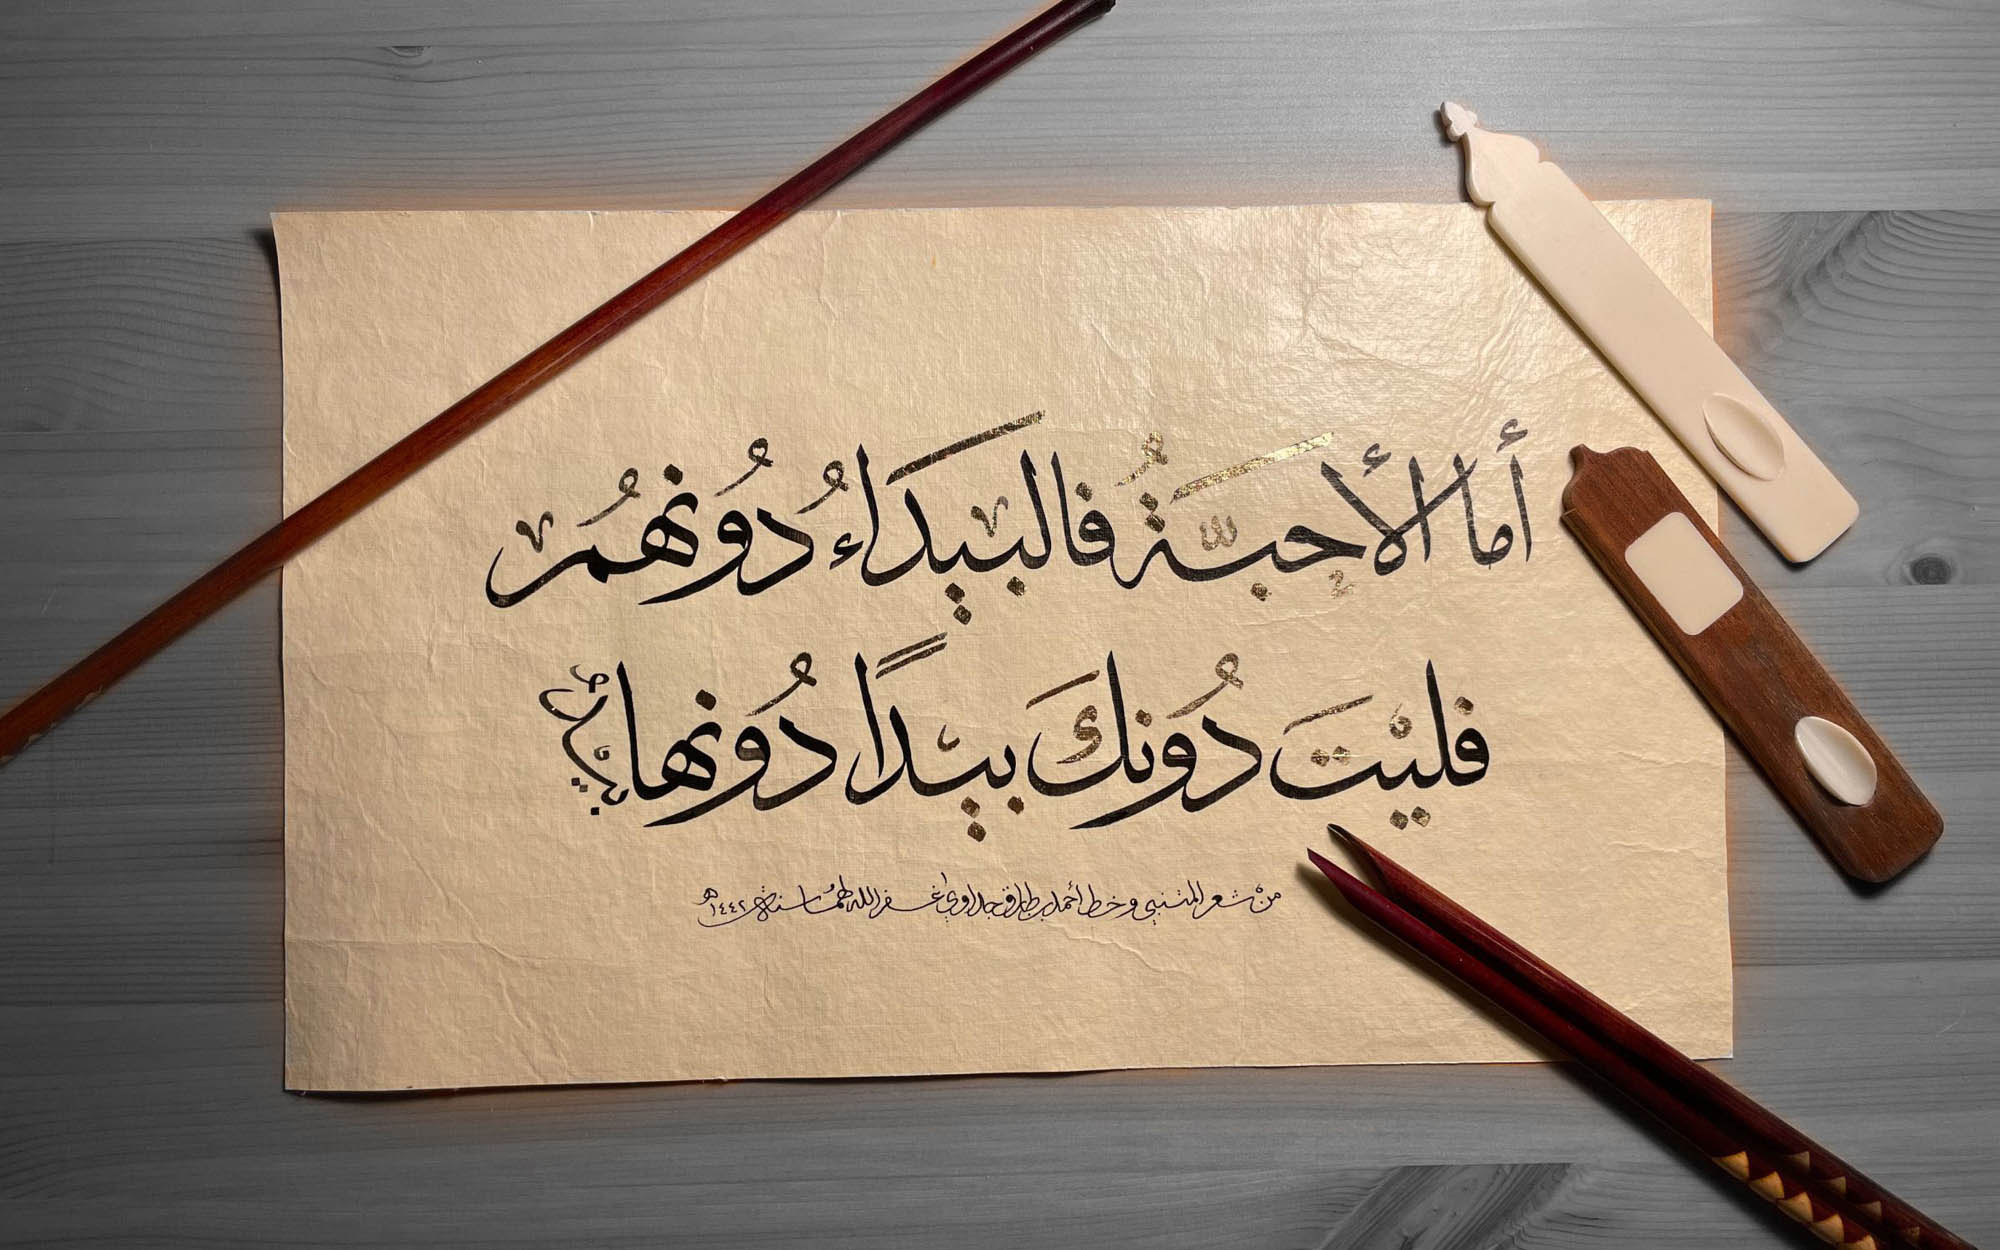 أما الأحبّةُ فالبيدَاءُ دُونهُمُ
فليْتَ دُونكَ بيْدًا دُونها بيدُ
منْ شعر المتنبي وخط أحمد بن طارق جداوي غفر الله لهما سنة ١٤٤٢هـ